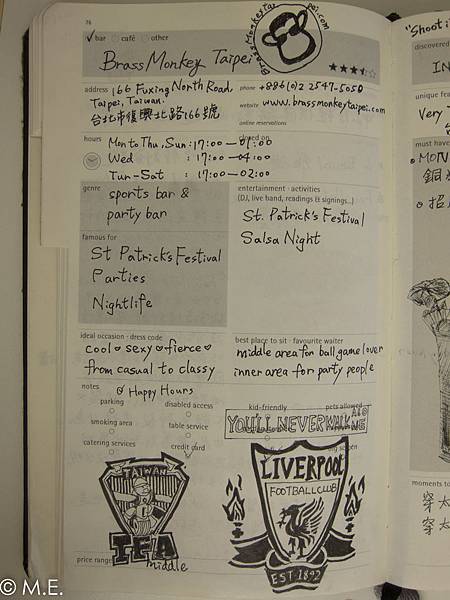 76
bar café other
Brass Monkey Taipei
Brass Monkey Taipei.com
address 166 Fuxing North Road,
Taipei, Taiwan.
台北市復興北路166號
phone +886(0)2 2547-5050
website www.brassmonkeytaipei.com
online reservations
hours Mon to Thu, Sun: 17:00 — 01:00
closed on
Wed : 17:00 — 04:00
: 17:00 — 02:00
genre sports bar &
party bar
entertainment · activities
(DJ, live band, readings & signings...)
St. Patrick's Festival
Salsa Night
famous for
St Patrick's Festival
Parties
Nightlife
ideal occasion · dress code
cool sexy fierce
from casual to classy
best place to sit · favourite waiter
middle area for ball game lover
inner area for party people
notes Happy Hours
parking
disabled access
kid-friendly
pets allowed
smoking area
table service
catering services
credit card
YOU'LL NEVER WALK ALONE
TAIWAN
TFA
LIVERPOOL
FOOTBALL CLUB
EST·1892
price range middle
"Shoot i
discovered
IN
unique fra
Very
must have
MON
銅
招
moments to
穿太
穿太
© M.E.